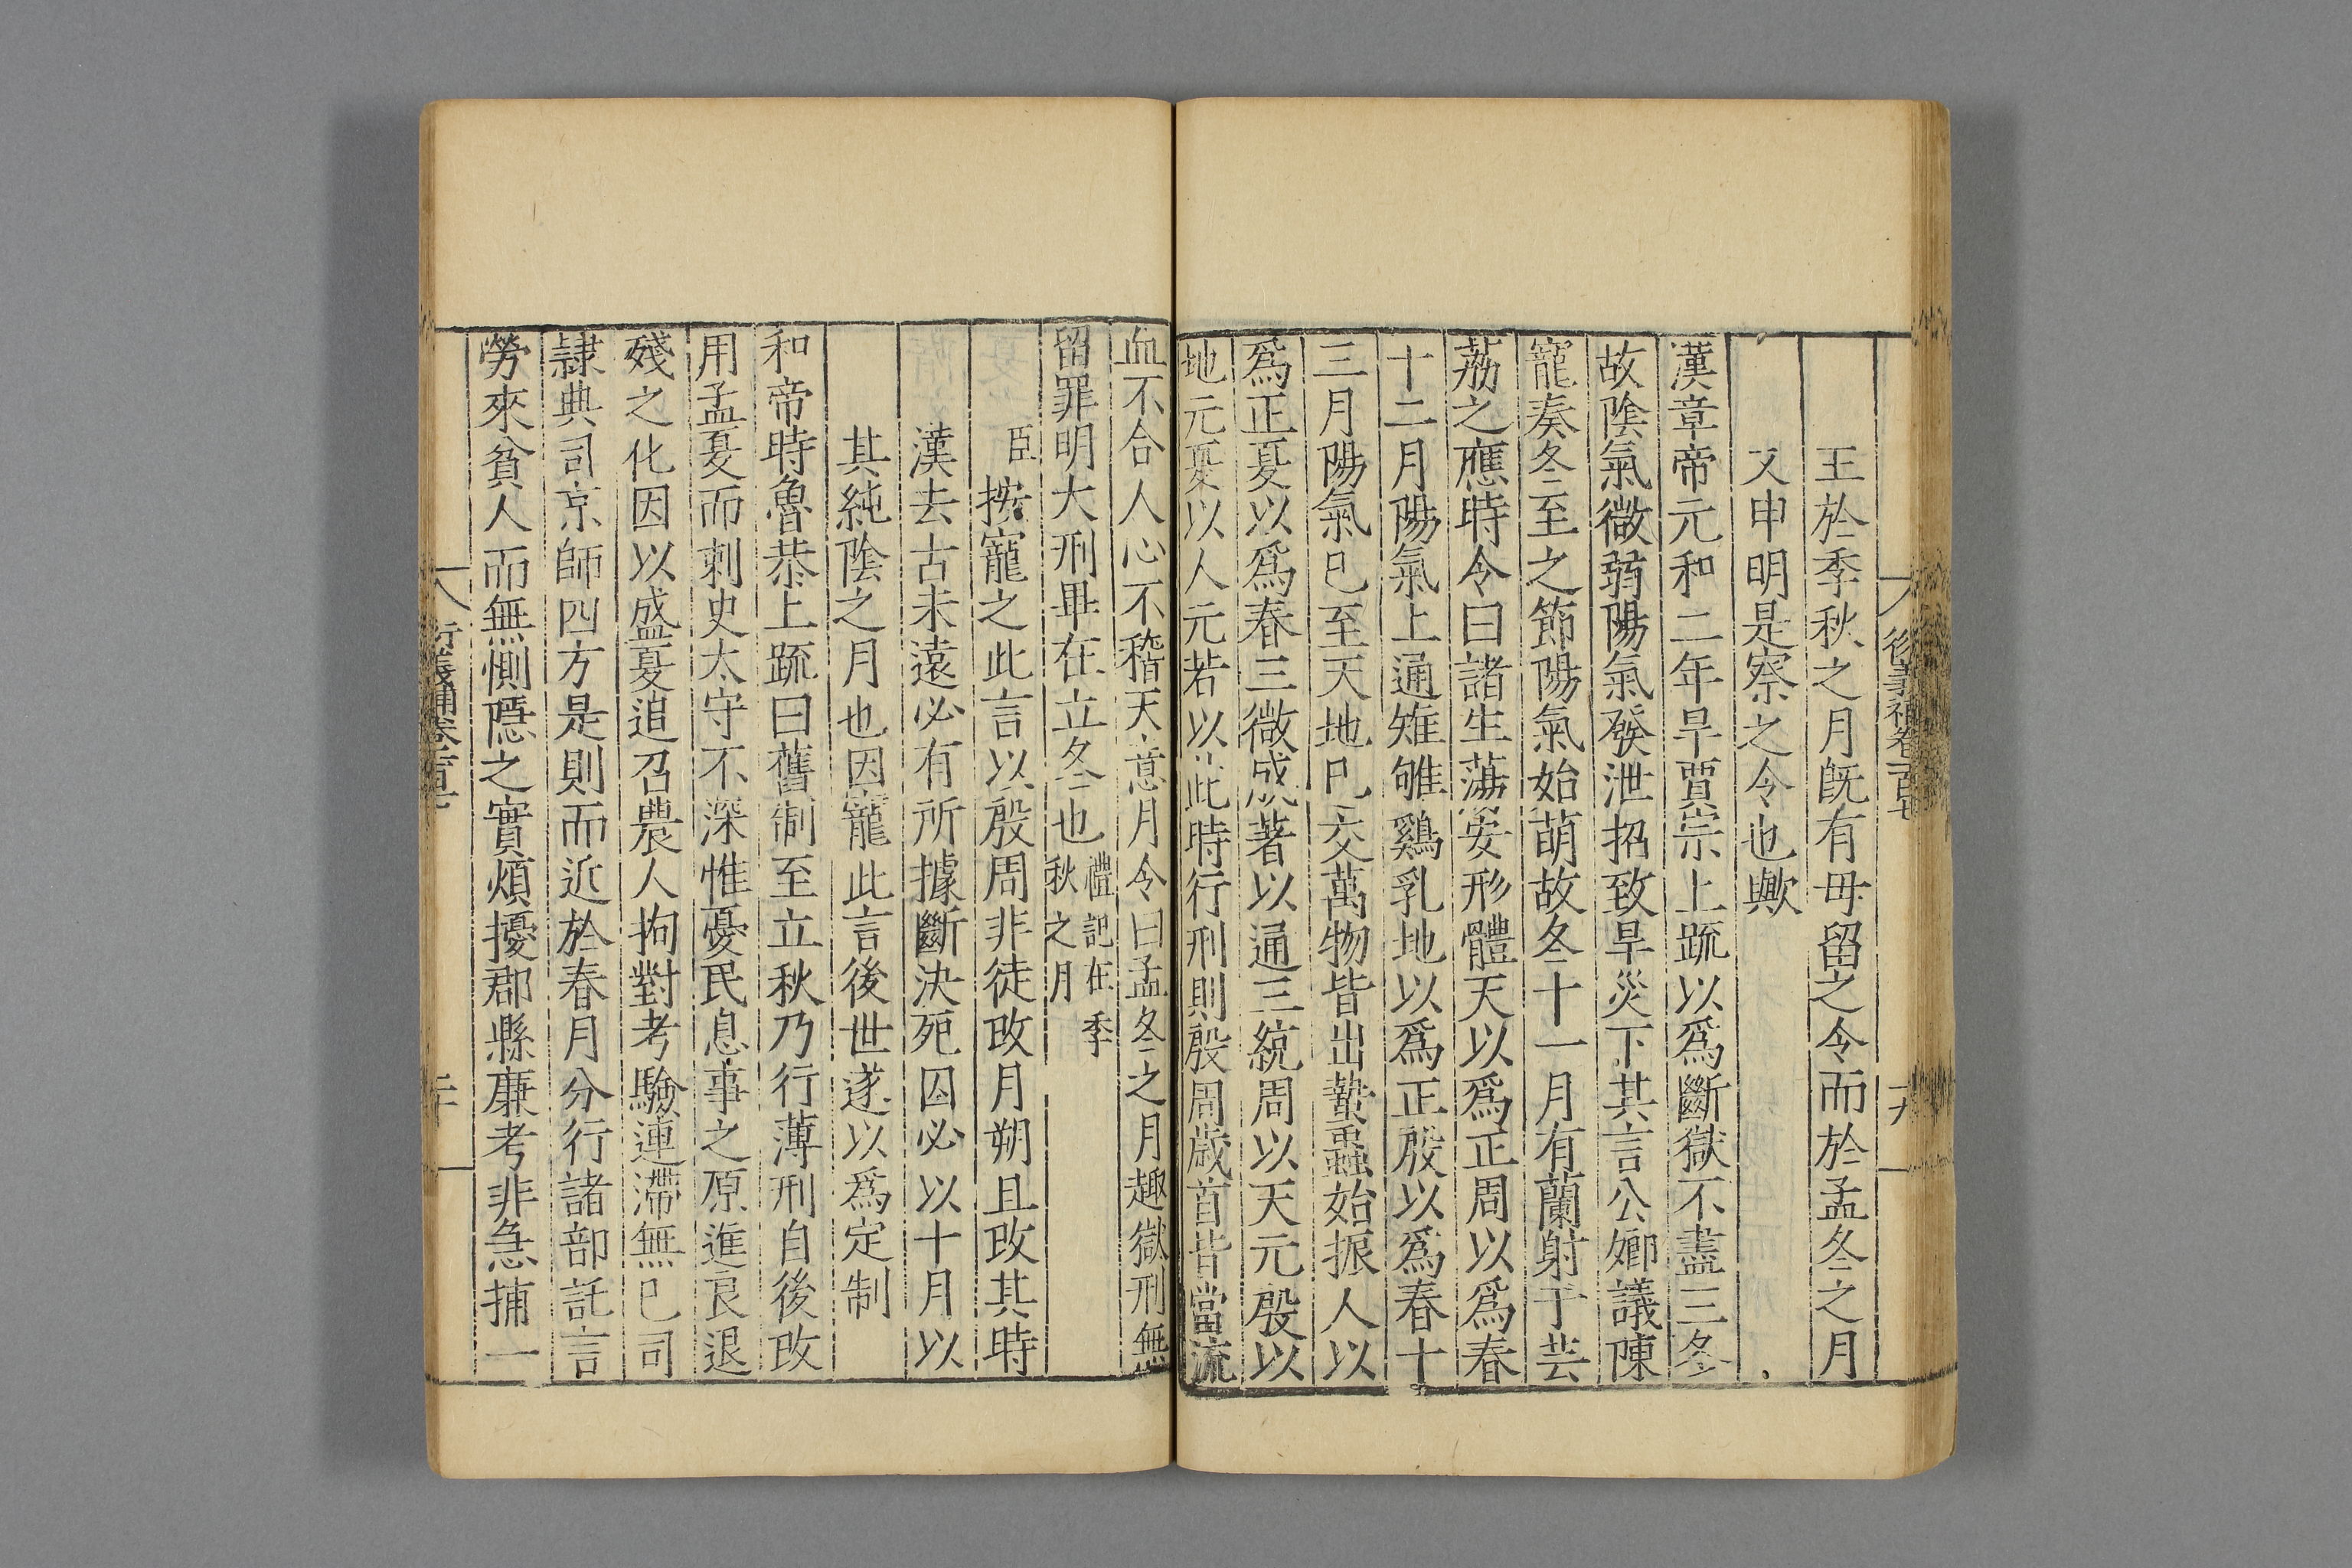 王於季秋之月既有毋留之令而於孟冬之月
又申明是察之令也歟
漢章帝元和二年旱賈宗上疏以爲斷獄不盡三冬
故陰氣微弱陽氣發泄招致旱災下其言公卿議陳
寵奏冬至之節陽氣始萌故冬十一月有蘭射干芸
荔之應時令曰諸生蕩安形體天以爲正周以爲春
十二月陽氣上通雉雊鷄乳地以爲正殷以爲春十
三月陽氣已至天地已交萬物皆出蟄蟲始振人以
爲正夏以爲春三微成著以通三統周以天元殷以
地元夏以人元若以此時行刑則殷周歲首皆當流
血不合人心不稽天意月令曰孟冬之月趣獄刑無
留罪明大刑畢在立冬也禮記在季秋之月
臣按寵之此言以殷周非徒改月朔且改其時
漢去古未遠必有所據斷決死囚必以十月以
其純陰之月也因寵此言後世遂以爲定制
和帝時魯恭上疏曰舊制至立秋乃行薄刑自後改
用孟夏而刺史太守不深惟憂民息事之原進良退
殘之化因以盛夏追召農人拘對考驗連滯無已司
隷典司京師四方是則而近於春月分行諸部託言
勞來貧人而無惻隱之實煩擾郡縣廉考非急捕一